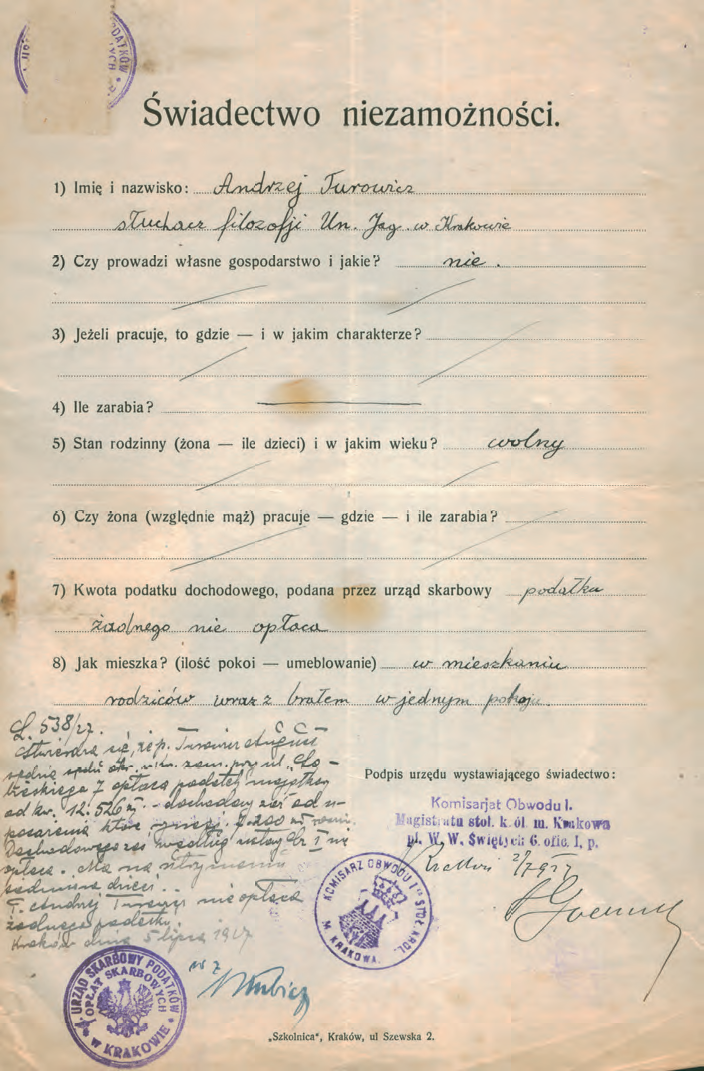 Świadectwo niezamożności.
1) Imię i nazwisko: Andrzej Turowicz
słuchacz filozofji Un. Jag. w Krakowie
2) Czy prowadzi własne gospodarstwo i jakie? nie.
3) Jeżeli pracuje, to gdzie — i w jakim charakterze?
4) Ile zarabia?
5) Stan rodzinny (żona — ile dzieci) i w jakim wieku? wolny
6) Czy żona (względnie mąż) pracuje — gdzie — i ile zarabia?
7) Kwota podatku dochodowego, podana przez urząd skarbowy podatku
żadnego nie opłaca
8) Jak mieszka? (ilość pokoi — umeblowanie) w mieszkaniu
rodziców wraz z bratem w jednym pokoju.
L. 538/27.
Stwierdza się, że p. Turowicz
zam. przy ul.
7 opłaca podatek
od kw. 12.526 zł. - dochodowy zaś od u-
posażenia które 7.200 zł
według ustawy
opłaca. Ma na utrzymaniu
dzieci.
P. Andrzej Turowicz nie opłaca
żadnego podatku.
Kraków dnia 5 lipca 1927
Podpis urzędu wystawiającego świadectwo:
Komisarjat Obwodu I.
Magistratu stoł. k. ól. m. Krakowa
pl. W. W. Świętych 6. ofic. I, p.
Kraków 2/7 927
KOMISARZ OBWODU I STOŁ. KRÓL. M. KRAKOWA
URZĄD SKARBOWY PODATKÓW
OPŁAT SKARBOWYCH
W KRAKOWIE
„Szkolnica", Kraków, ul Szewska 2.